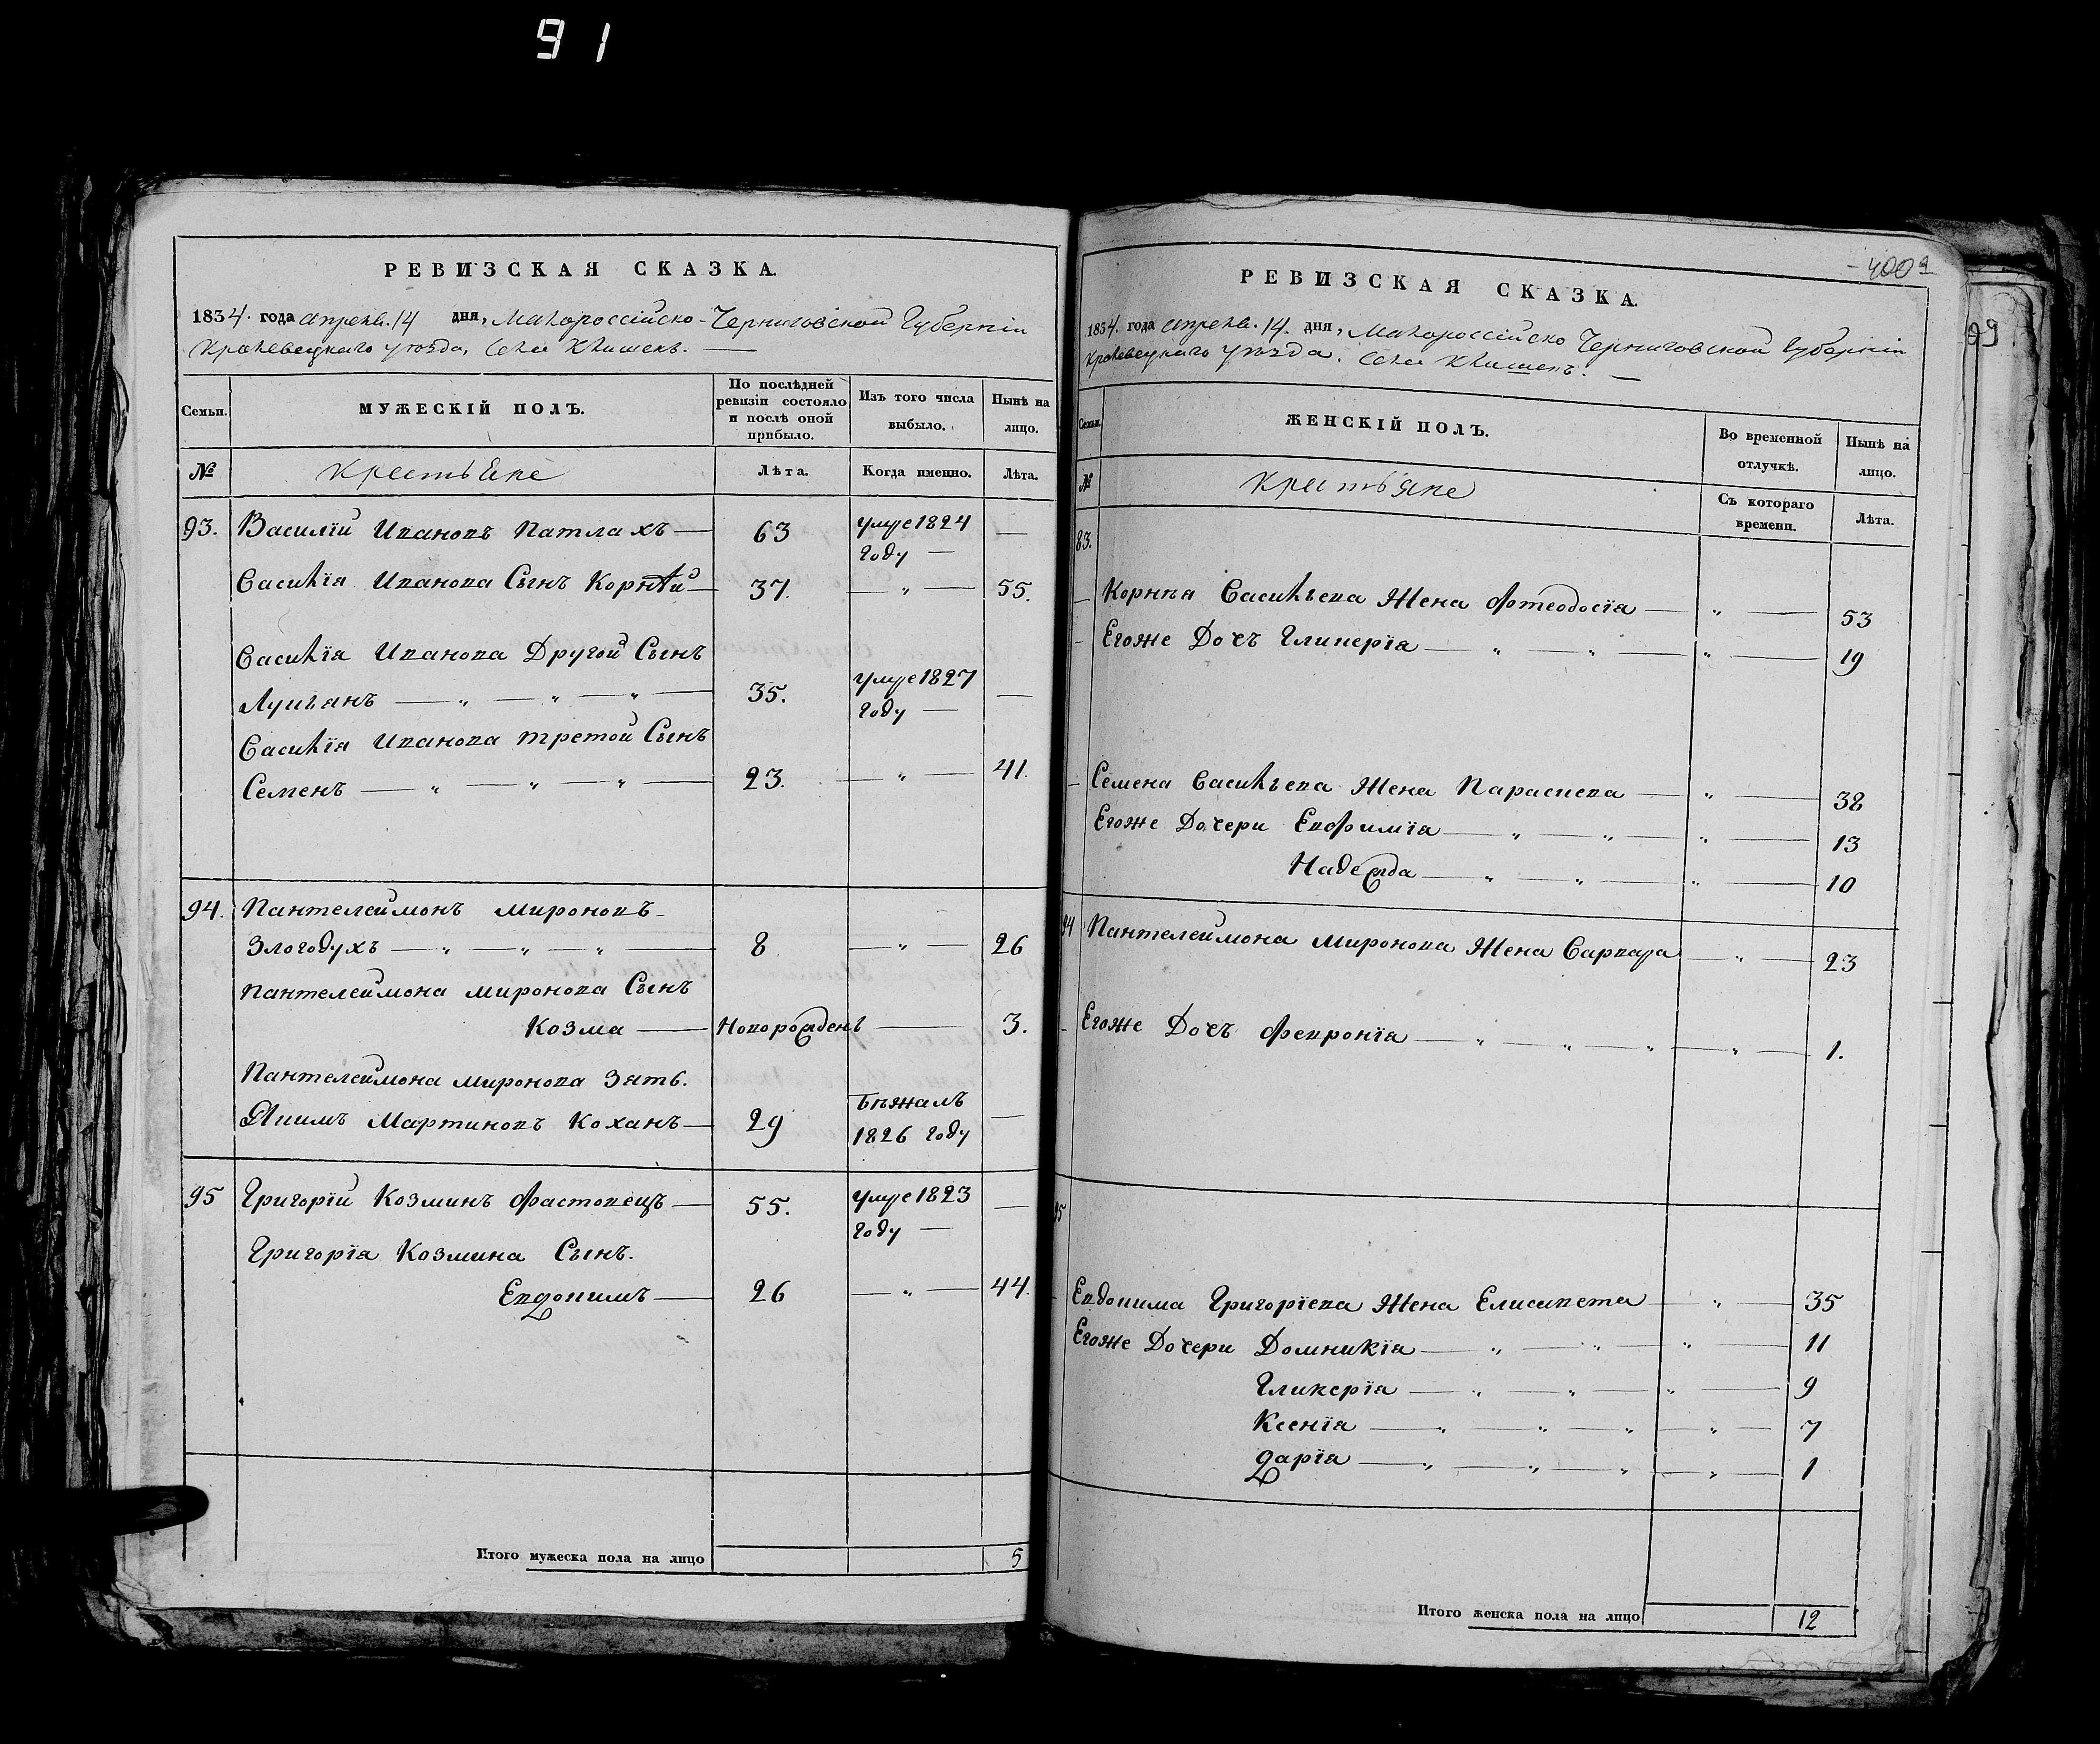 91
РЕВИЗСКАЯ СКАЗКА.
1834. года апреля. 14 дня, Малороссійско-Черниговской Губерніи
Кролевецкаго уѣзда, Села Клишекъ.
Семьи.
МУЖЕСКІЙ ПОЛЪ.
По послѣдней ревизіи состояло и послѣ оной прибыло.
Изъ того числа выбыло.
Нынѣ на лицо.
№
Крестьяне
Лѣта.
Когда именно.
Лѣта.
93. Василій Ивановъ Патлахъ — 63 умре 1824 году —
Василія Иванова Сынъ Корнѣй — 37. — " — 55.
Василія Иванова Другой Сынъ
Лукьянъ — " — " — " — 35. умре 1827 году —
Василія Иванова третой Сынъ
Семенъ — " — " — " — 23. — " — 41.
94. Пантелеймонъ Мироновъ
Злогодухъ — " — " — " — 8 — " — 26
Пантелеймона Миронова Сынъ
Козма — Новорожденъ — 3.
Пантелеймона Миронова Зять.
Якимъ Мартиновъ Коханъ — 29 Бѣжалъ 1826 году —
95 Григорій Козминъ Фастовецъ — 55. умре 1823 году —
Григорія Козмина Сынъ.
Евдокимъ — 26 — " — 44.
Итого мужеска пола на лицо 5
400
99
РЕВИЗСКАЯ СКАЗКА.
1834. года апреля. 14. дня, Малороссійско Черниговской Губерніи
Кролевецкаго уѣзда. Села Клишекъ. —
Семьи.
ЖЕНСКІЙ ПОЛЪ.
Во временной отлучкѣ.
Нынѣ на лицо.
№
Крестьяне
Съ котораго времени.
Лѣта.
83.
Корнѣя Васильева Жена Фтеодосія — " — 53
Егоже Дочъ Гликерія — " — " — " — 19
Семена Васильева Жена Параскева — " — 38
Егоже Дочери Евфимія — " — " — " — 13
Надежда — " — " — " — 10
94 Пантелеймона Миронова Жена Варвара — " — 23
Егоже Дочъ Февронія — " — " — " — " — 1.
95
Евдокима Григоріева Жена Елисавета — " — 35
Егоже Дочери Домникія — " — " — " — 11
Гликерія — " — " — " — 9
Ксенія — " — " — " — " — 7
Дарія — " — " — " — " — 1
Итого женска пола на лицо 12